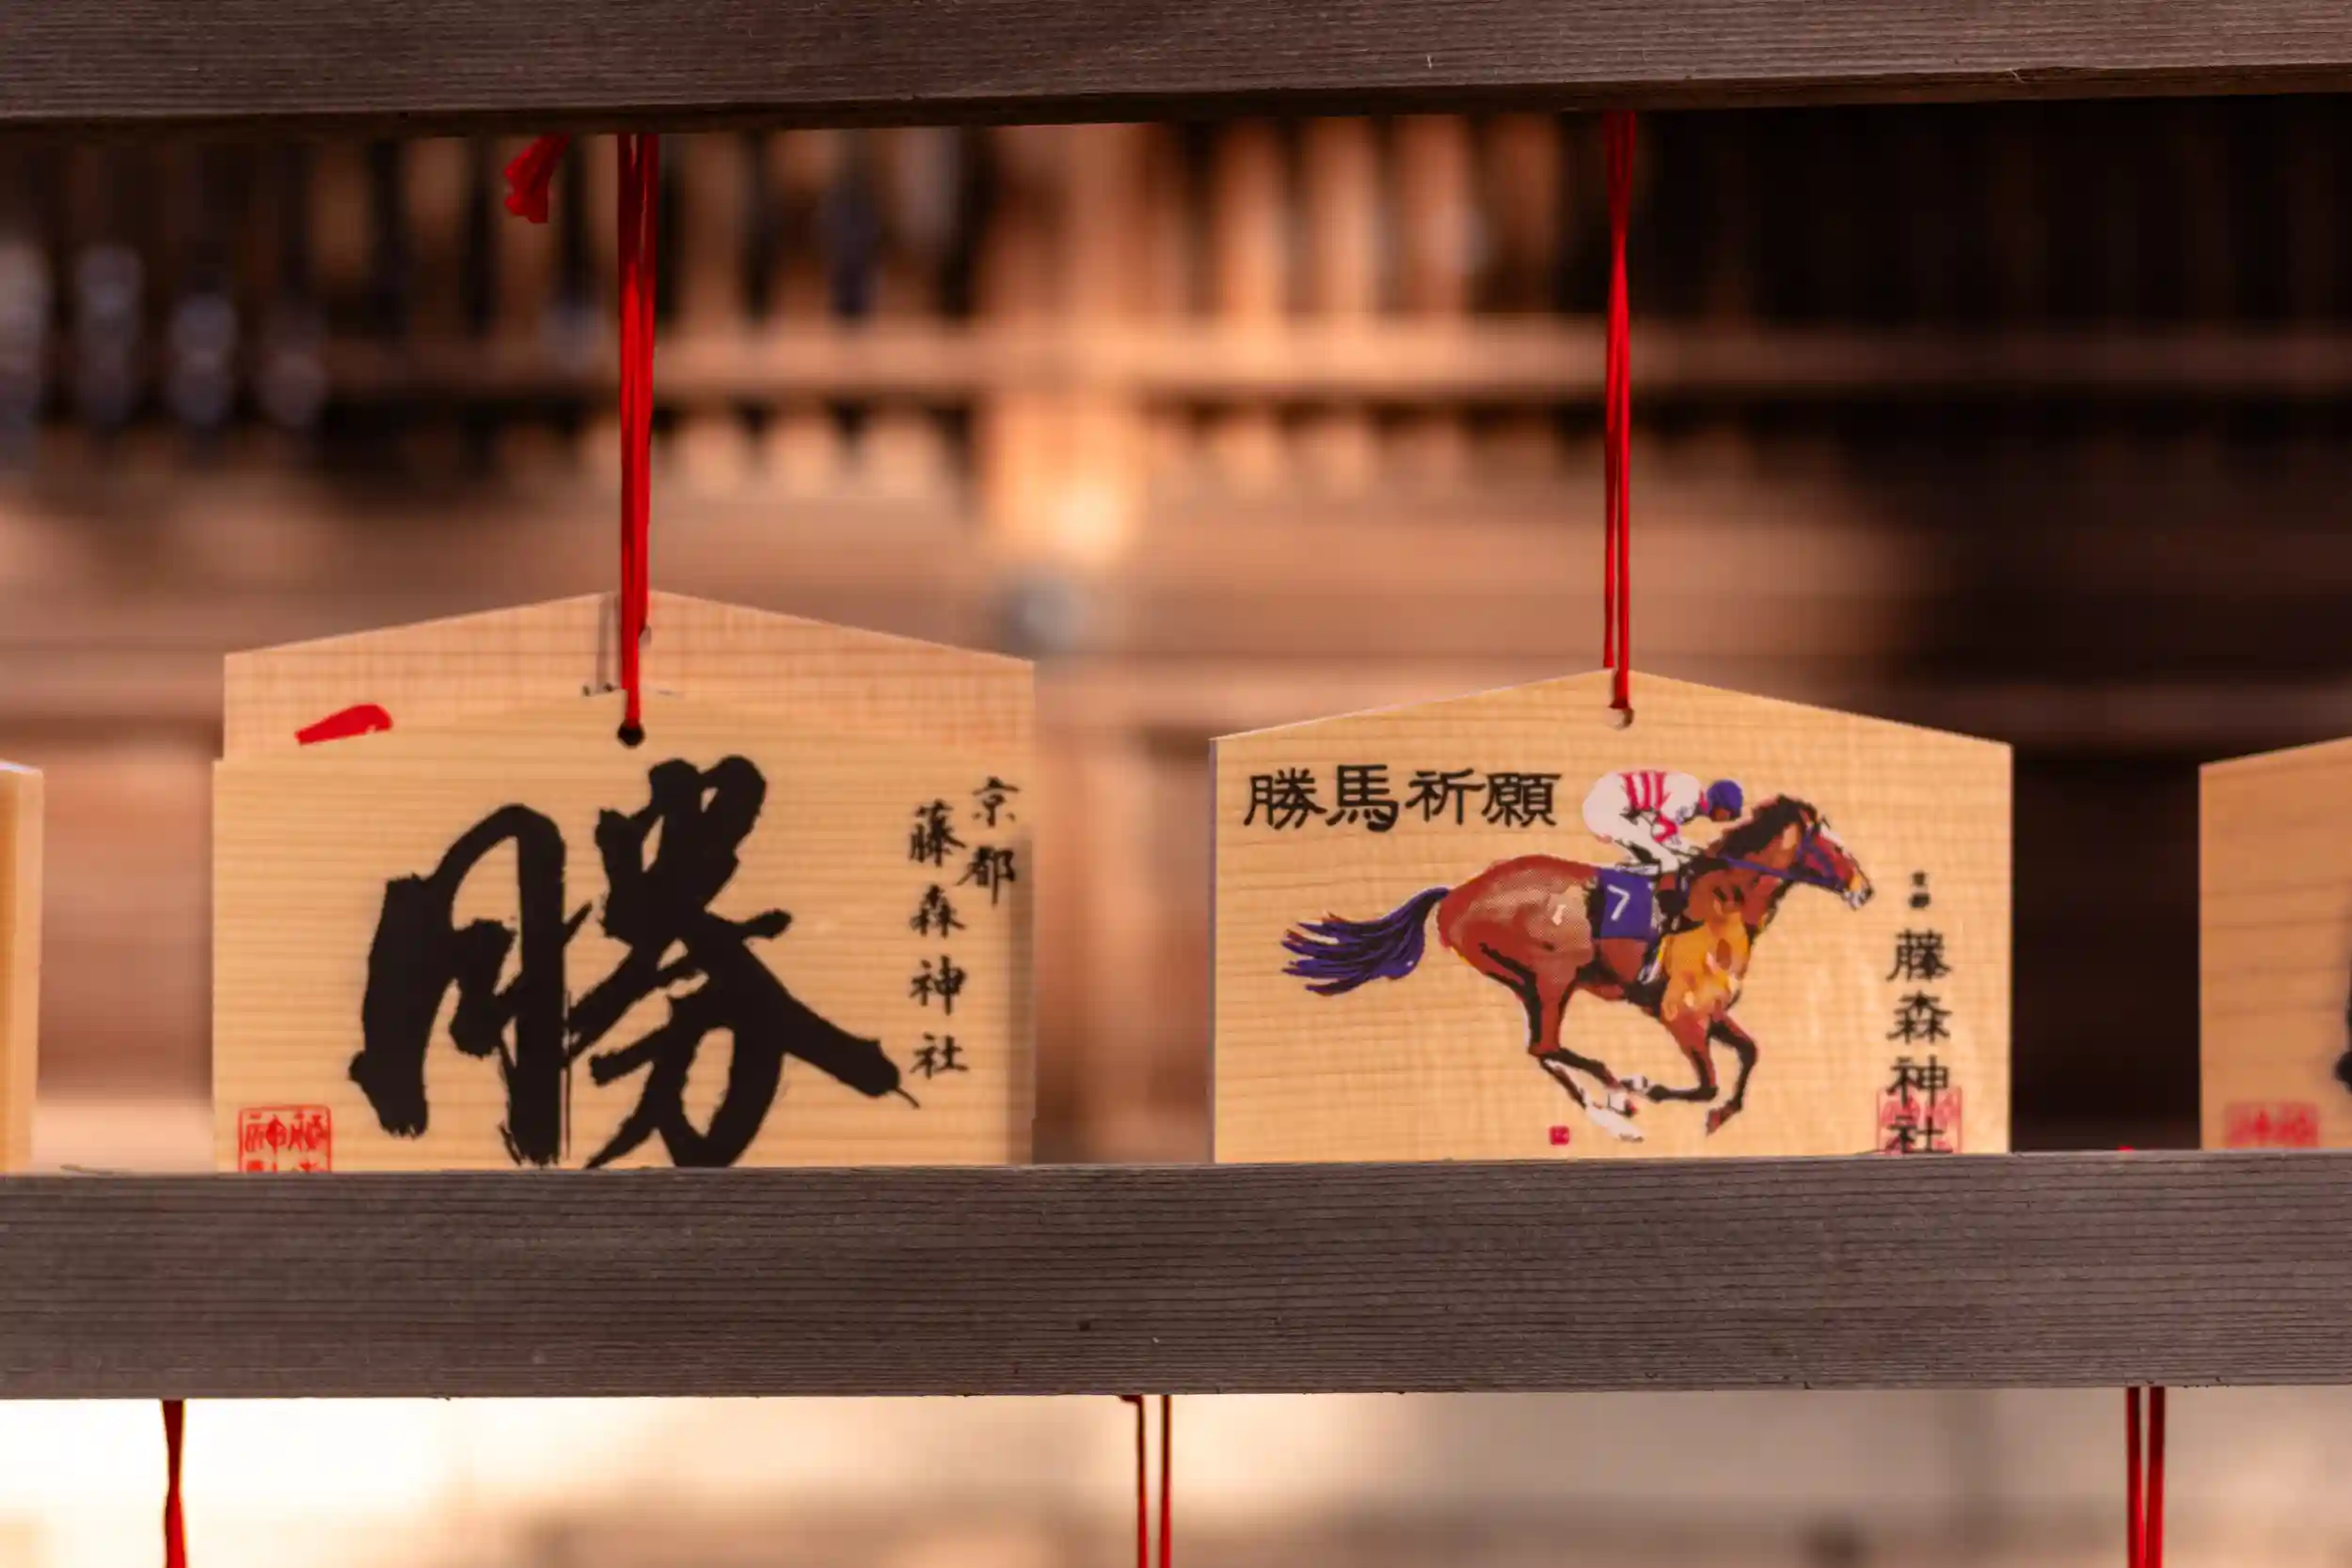 勝
京都
藤森神社
勝馬祈願
7
京都
藤森神社